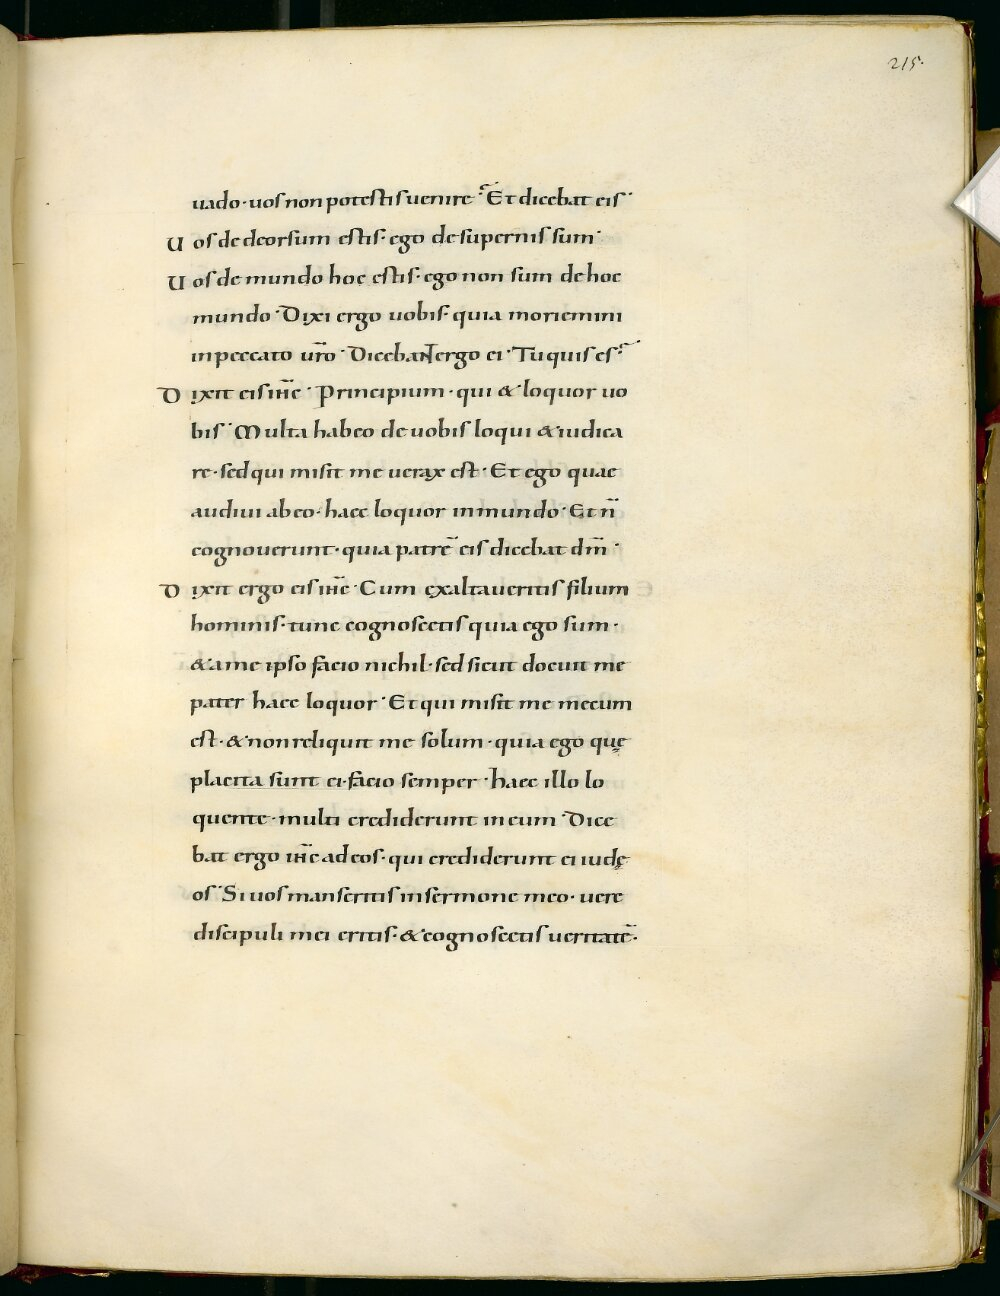 215.
uado· uos non potestis uenire? Et dicebat eis·
Uos de deorsum estis· ego de supernis sum·
Uos de mundo hoc estis· ego non sum de hoc
mundo· Dixi ergo uobis· quia moriemini
in peccato ur̄o· Dicebant ergo ei· Tu quis es?
Dixit eis ih̄c· Principium· qui & loquor uo
bis· Multa habeo de uobis loqui & iudica
re· sed qui misit me uerax est· Et ego quae
audiui ab eo· haec loquor in mundo· Et n̄
cognouerunt· quia patrē eis dicebat dm̄·
Dixit ergo eis ih̄c· Cum exaltaueritis filium
hominis· tunc cognoscetis quia ego sum·
& a me ipso facio nichil· sed sicut docuit me
pater haec loquor· Et qui misit me mecum
est· & non reliquit me solum· quia ego quę
placita sunt ei· facio semper· haec illo lo
quente· multi crediderunt in eum· Dice
bat ergo ih̄c ad eos· qui crediderunt ei iudę
os· Si uos manseritis in sermone meo· uere
discipuli mei eritis· & cognoscetis ueritatē·